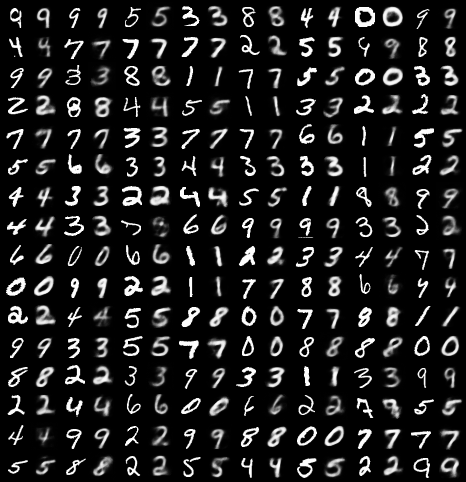 9 9 9 9 5 5 3 3 8 8 4 4 0 0 9 9
4 9 7 7 7 7 7 7 2 2 5 5 9 8 8
9 9 3 3 8 8 1 1 7 7 5 5 0 0 3 3
2 2 8 8 4 4 5 5 1 1 3 3 2 2 2 2
7 7 7 7 3 3 7 7 7 7 6 6 1 1 5 5
5 5 6 6 3 3 4 4 3 3 3 3 1 1 2 2
4 4 3 3 2 2 4 4 5 5 1 1 8 8 9 9
4 4 3 3 6 6 9 9 9 9 3 3 2 2
6 6 0 0 6 6 1 1 2 2 3 3 4 4 7 7
0 0 9 9 2 2 1 1 7 7 8 8 6 6 4 4
2 2 4 4 5 5 8 8 0 0 7 7 8 8 1 1
9 9 3 3 5 5 7 7 0 0 8 8 8 8 0 0
8 8 2 2 3 3 9 9 3 3 1 1 3 3 9 9
2 2 4 4 6 6 0 0 6 6 2 2 7 7 5 5
4 4 9 9 2 2 9 9 8 8 0 0 7 7 7 7
5 5 8 8 2 2 5 5 4 4 5 5 2 2 9 9